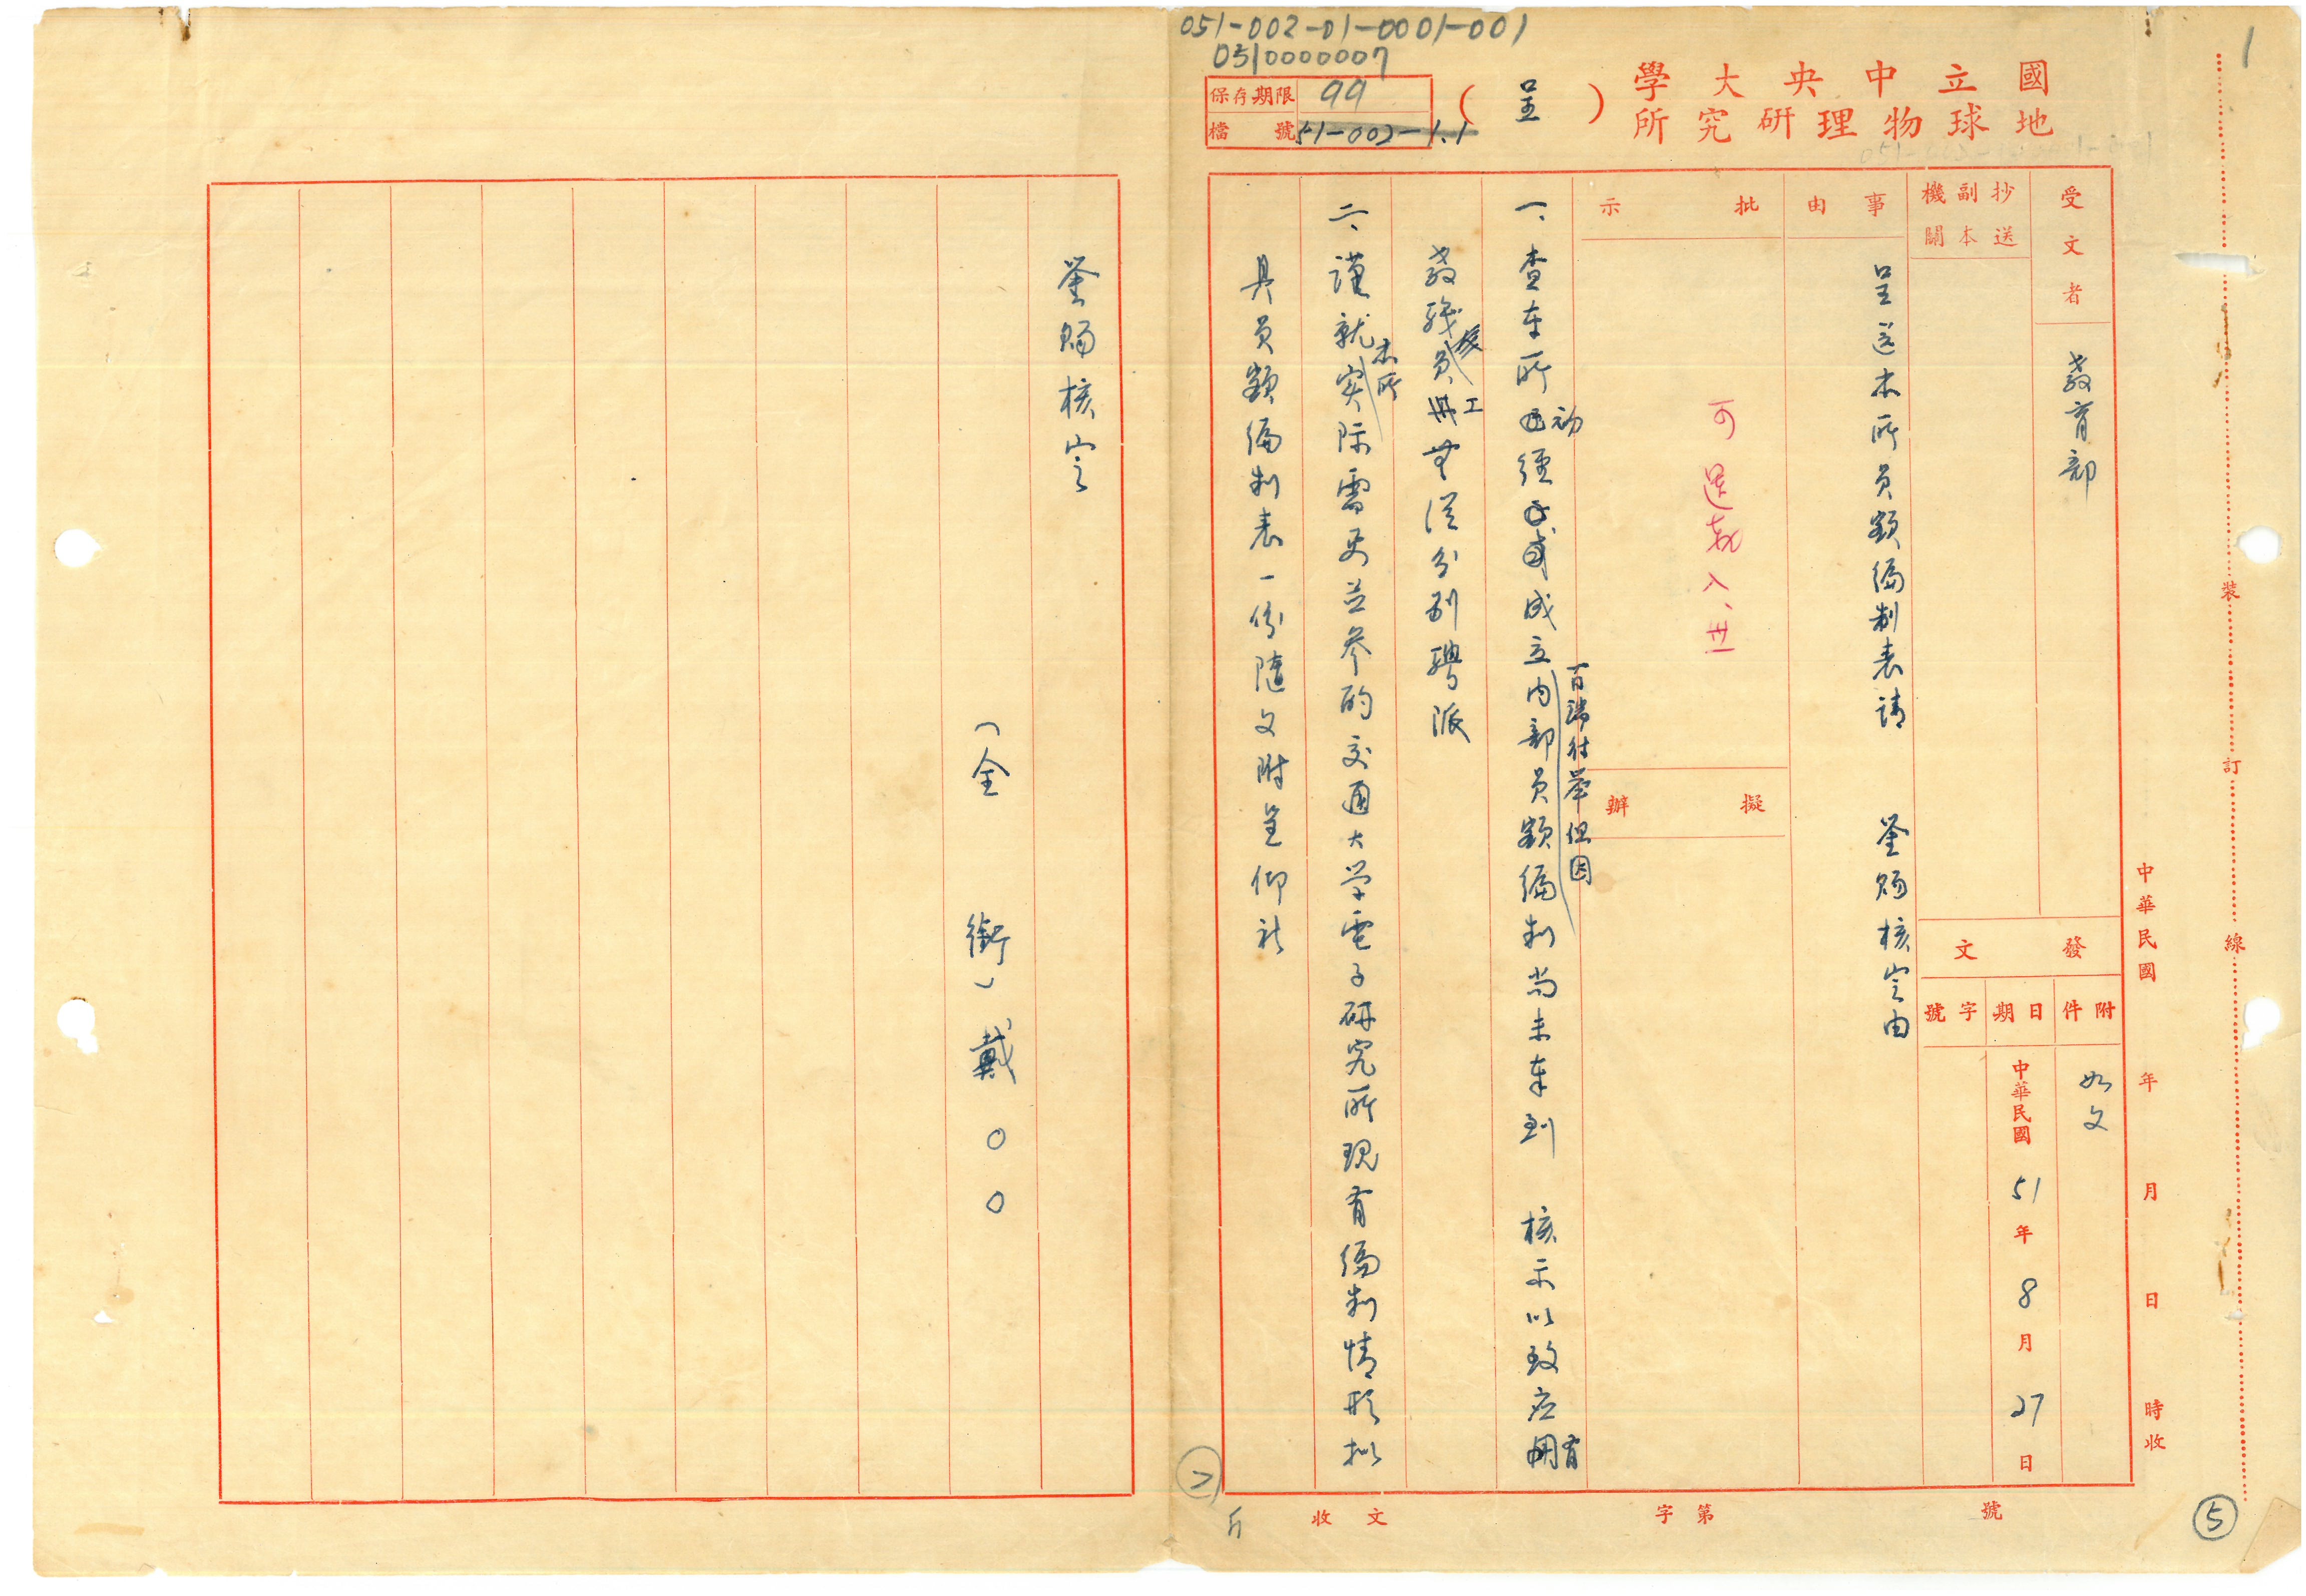 051-002-01-0001-001
0510000007
保存期限 99
檔號 51-002-1.1
國立中央大學
地球物理研究所
(呈)
1
受文者 教育部
抄送副本機關
事由 呈送本所員額編制表請 鉴賜核定由
批示
擬辦
發文
附件 如文
日期 中華民國 51 年 8 月 27 日
字號
中華民國 年 月 日 時收
裝 訂 線
一、查本所初經 成立百端待舉但因內部員額編制尚未奉到 核示以致應有
教职員工無從分別聘派
二、謹就本所实际需要並參酌交通大学電子研究所現有編制情形拟
具員額編制表一份隨文附呈仰祈
鉴賜核定
(全 銜)戴○○
收文 字第 號
5